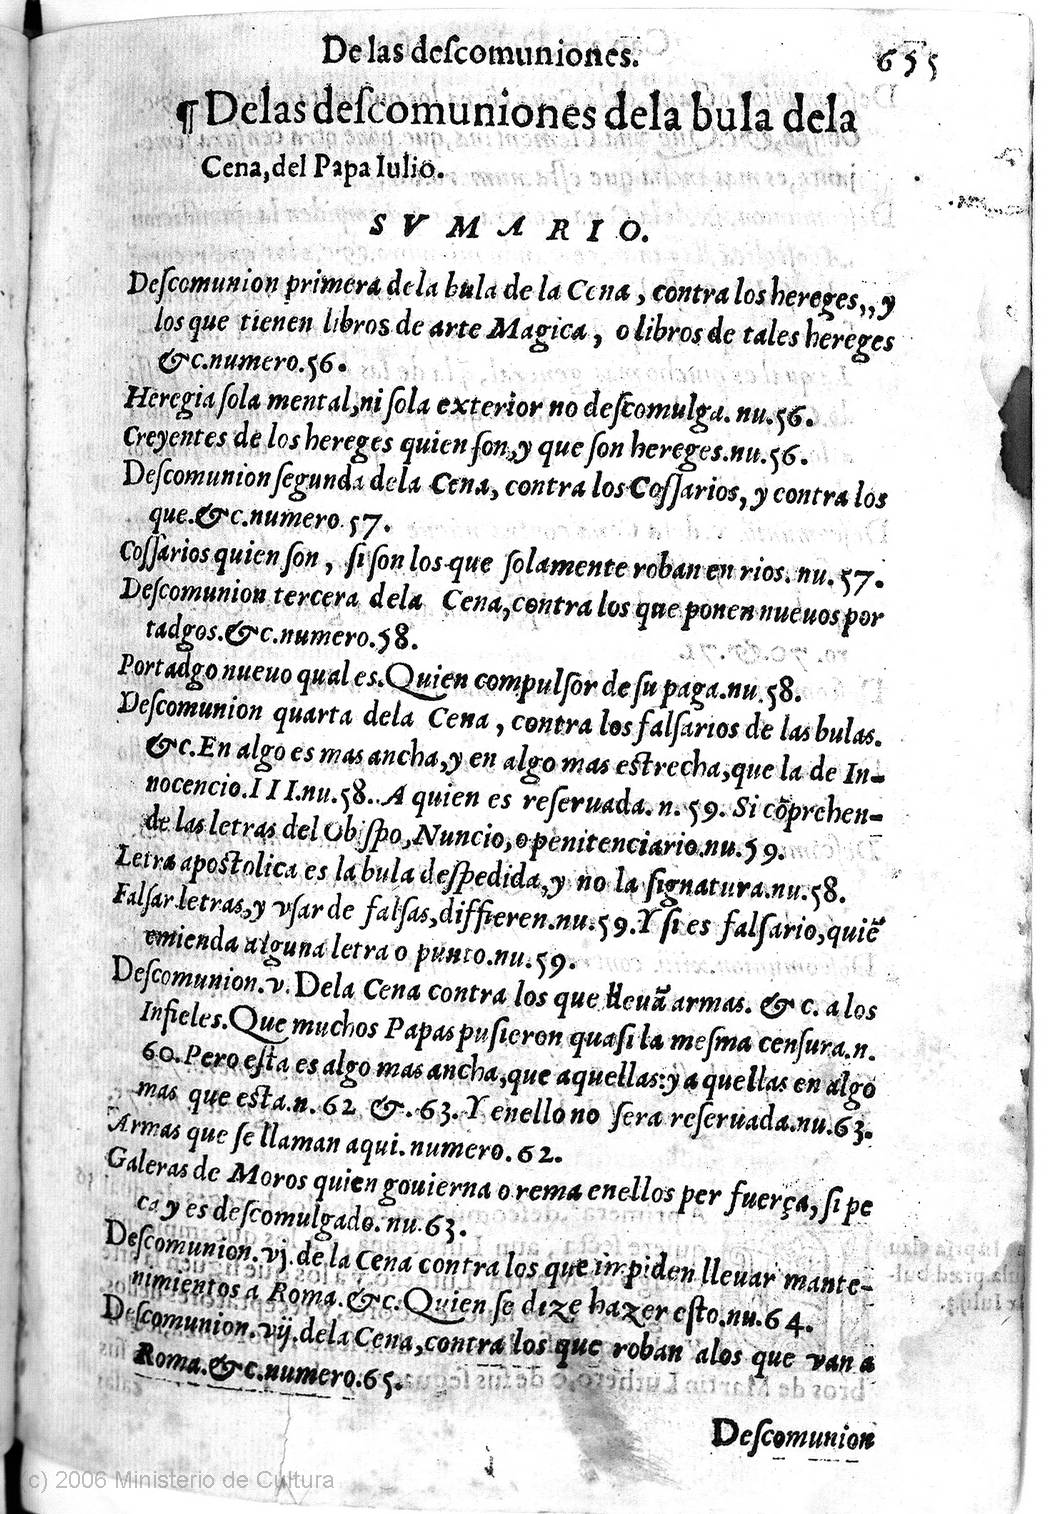 De las deſcomuniones.
655
¶ Delas deſcomuniones dela bula dela
Cena, del Papa Iulio.
S V M A R I O.
Deſcomunion primera dela bula de la Cena, contra los hereges,, y
los que tienen libros de arte Magica, o libros de tales hereges
&c.numero.56.
Heregia ſola mental,ni ſola exterior no deſcomulga. nu.56.
Creyentes de los hereges quien ſon,y que ſon hereges.nu.56.
Deſcomunion ſegunda dela Cena, contra los Coſſarios, y contra los
que.&c.numero.57.
Coſſarios quien ſon, ſi ſon los que ſolamente roban en rios. nu.57.
Deſcomunion tercera dela Cena,contra los que ponen nueuos por
tadgos.&c.numero.58.
Portadgo nueuo qual es.Quien compulſor de ſu paga.nu.58.
Deſcomunion quarta dela Cena, contra los falſarios de las bulas.
&c.En algo es mas ancha,y en algo mas estrecha,que la de In-
nocencio.III.nu.58..A quien es reſeruada. n. 59. Si cõprehen-
de las letras del Obiſpo,Nuncio,o penitenciario.nu.59.
Letra apostolica es la bula deſpedida,y no la ſignatura.nu.58.
Falſar letras,y vſar de falſas,differen.nu.59.Y ſi es falſario,quiẽ
emienda alguna letra o punto.nu.59.
Deſcomunion.v.Dela Cena contra los que lleuã armas. &c. a los
Infieles.Que muchos Papas puſieron quaſi la meſma cenſura.n.
60.Pero eſta es algo mas ancha,que aquellas:y aquellas en algo
mas que esta.n. 62 &. 63. Y enello no ſera reſeruada.nu.63.
Armas que ſe llaman aqui. numero. 62.
Galeras de Moros quien gouierna o rema enellos per fuerça, ſi pe
ca y es deſcomulgado. nu.63.
Deſcomunion.vj. de la Cena contra los que impiden lleuar mante-
nimientos a Roma.&c.Quien ſe dize hazer eſto.nu.64.
Deſcomunion.vij.dela Cena,contra los que roban alos que van a
Roma.&c.numero.65.
Deſcomunion
(c) 2006 Ministerio de Cultura